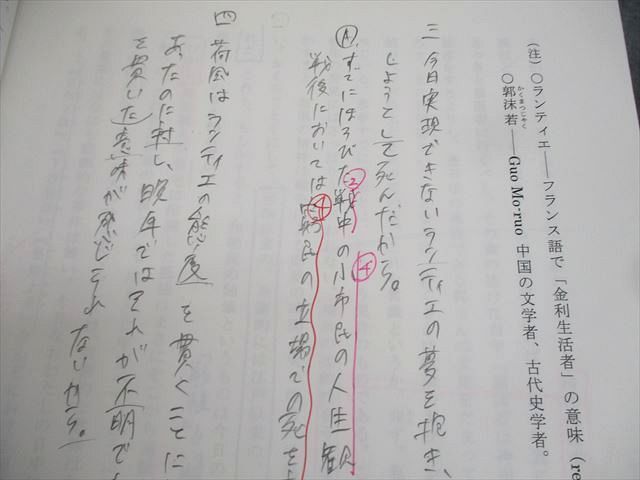 (注) ○ランティエ――フランス語で「金利生活者」の意味(re
○郭沫若――Guo Mo-ruo 中国の文学者、古代史学者。
かくまつじゃく
三 今日実現できないランティエの夢を抱き、
しようとして死んだから。
A すでにほろびた戦中の小市民の人生観
② ④
戦後においては窮民の立場での死を
④
四 荷風はランティエの態度を貫くことに
あったのに対し、晩年ではそれが不明で
を貫いた意味が感じられないから。